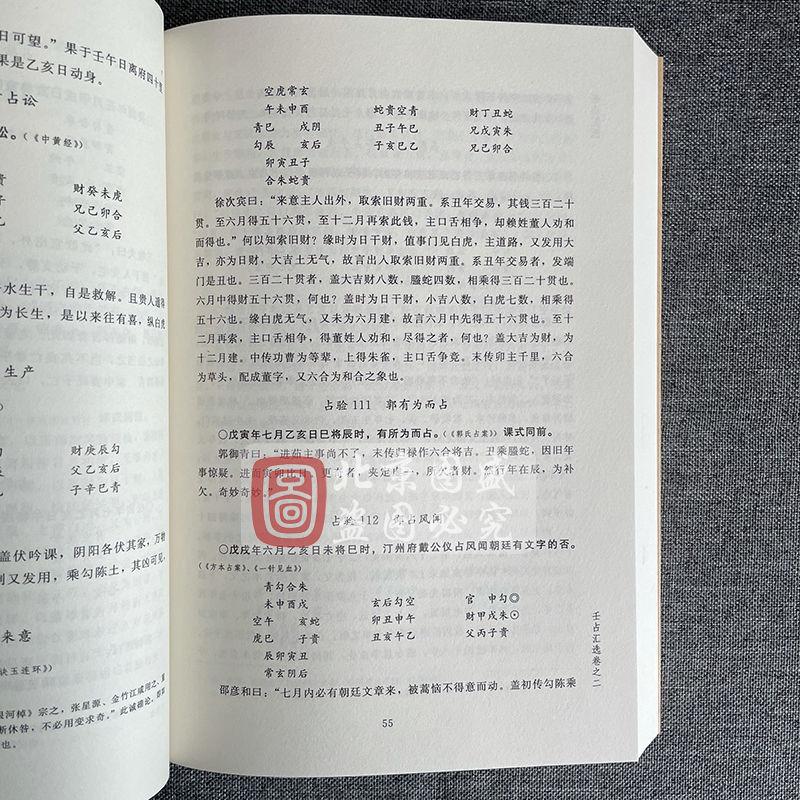 日可望。”果于壬午日离府四十贯
果是乙亥日动身。
占讼
公。（《中黄经》）
贵 财癸未虎
子 兄己卯合
亥 父乙亥后
水生干，自是救解。且贵人遁得
为长生，是以来往有喜，纵白虎
生产
勾 财庚辰勾
巳 父乙亥后
辰 子辛巳青
盖伏吟课，阴阳各伏其家，万物
刑又发用，乘勾陈土，其凶可见，
来意
诀玉连环》）
银河棹》宗之，张星源、金竹江咸用之，
断休咎，不必用变求奇。”此诚确论，
也。
空虎常玄
午未申酉 蛇贵空青 财丁丑蛇
青巳 戌阴 丑子午巳 兄戊寅朱
勾辰 亥后 子亥巳乙 兄己卯合
卯寅丑子
合朱蛇贵
徐次宾曰：“来意主人出外，取索旧财两重。系丑年交易，其钱三百二十
贯。至六月得五十六贯，至十二月再索此钱，主口舌相争，却赖姓董人劝和
而得也。”何以知索旧财？缘时为日干财，值事门见白虎，主道路，又发用大
吉，亦为日财，大吉土无气，故言出入取索旧财两重。系丑年交易者，发端
门是丑也。三百二十贯者，盖大吉财八数，螣蛇四数，相乘得三百二十也。
六月中得财五十六贯，何也？盖时为日干财，小吉八数，白虎七数，相乘得
五十六也。缘白虎无气，又未为六月建，故言六月中先得五十六贯也。至十
二月再索，主口舌相争，得董姓人劝和，尽得之者，何也？盖大吉为财，为
十二月建。中传功曹为等辈，上得朱雀，主口舌争竞。末传卯主千里，六合
为草头，配成董字，又六合为和合之象也。
占验111 郭有为而占
○戊寅年七月乙亥日巳将辰时，有所为而占。（《郭氏占案》）课式同前。
郭御青曰：“进茹主事尚不了，末传归禄作六合将吉。丑乘螣蛇，因旧年
事惊疑。进而寅卯比日。更有者，夹定，所欠者财。行年在辰，为补
欠。奇妙奇妙。”
占验112 邵占风闻
○戊戌年六月乙亥日未将巳时，汀州府戴公仪占风闻朝廷有文字的否。
（《方本占案》、《一针见血》）
青勾合朱
未申酉戌 玄后勾空 官 申勾◎
空午 亥蛇 卯丑申午 财甲戌朱⊙
虎巳 子贵 丑亥午乙 父丙子贵
辰卯寅丑
常玄阴后
邵彦和曰：“七月内必有朝廷文章来，被蒿恼不得意而动。盖初传勾陈乘
壬占汇选卷之二
55
北京图盛
盗图必究